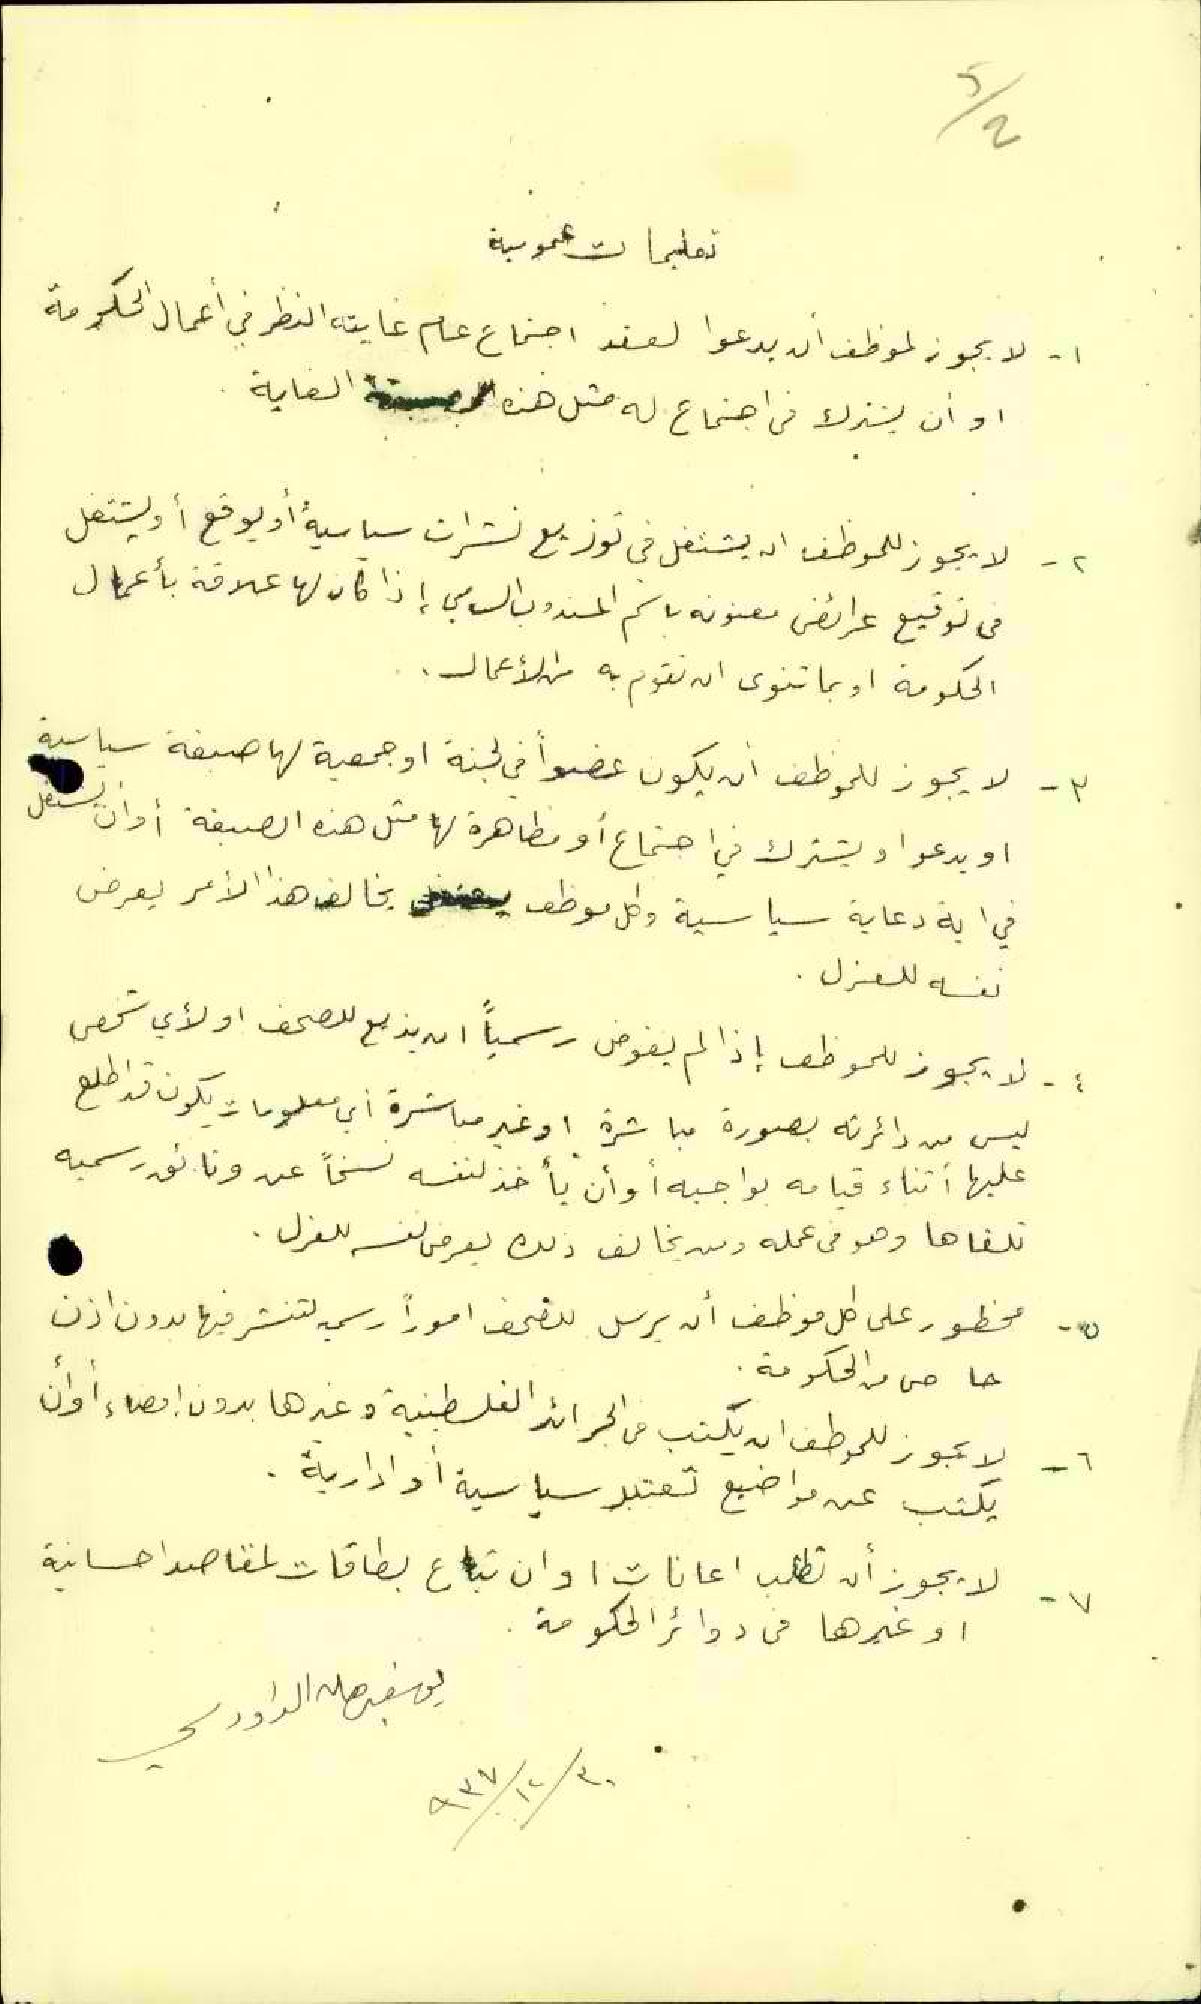 تعليمات عمومية
١- لا يجوز لموظف أن يدعوا لعقد اجتماع عام غايته النظر في أعمال الحكومة
او أن يشترك في اجتماع له مثل هذه الغاية .
٢- لا يجوز للموظف ان يشتغل في توزيع نشرات سياسية أو يوقع أو يشتغل
في توقيع عرائض معنونه باسم المندوب السامي إذا كان لها علاقة بأعمال
الحكومة او بما تنوى ان تقوم به من الأعمال .
٣- لا يجوز للموظف ان يكون عضواً في لجنة او جمعية لها صبغة سياسية
او يدعوا او يشترك في اجتماع أو مظاهرة لها مثل هذه الصبغة أو أن يشتغل
في اية دعاية سياسية وكل موظف يخالف هذا الأمر يعرض
نفسه للعزل .
٤- لا يجوز للموظف إذا لم يفوض رسمياً ان يذيع للصحف او لأي شخص
ليس من دائرته بصورة مباشرة او غير مباشرة أي معلومات يكون قد اطلع
عليها أثناء قيامه بواجبه أو أن يأخذ لنفسه نسخاً عن وثائق رسميه
تلقاها وهو في عمله ومن يخالف ذلك يعرض نفسه للعزل .
٥- محظور على كل موظف أن يرسل للصحف اموراً رسميه لتنشر فيها بدون اذن
خاص من الحكومة .
٦- لا يجوز للموظف ان يكتب في الجرائد الفلسطينية وغيرها بدون إمضاء أو أن
يكتب عن مواضيع تعتبر سياسية أو ادارية .
٧- لا يجوز أن تطلب اعانات او ان تباع بطاقات لمقاصد احسانية
او غيرها في دوائر الحكومة .
٣٠/١٢/٩٣٧